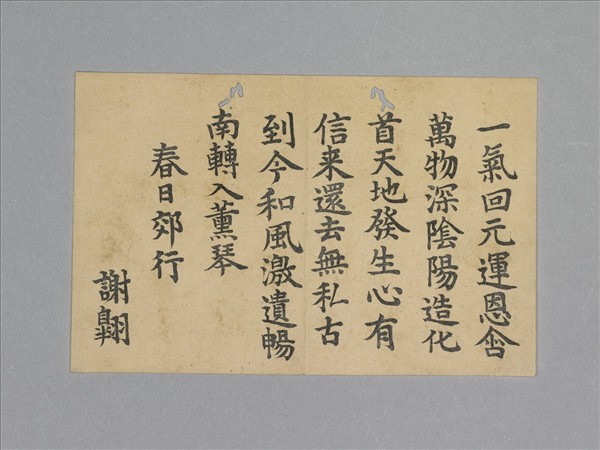 一氣回元運恩含
萬物深陰陽造化
首天地發生心有
信来還去無私古
到今和風激遺暢
南轉入薰琴
春日郊行
謝翱